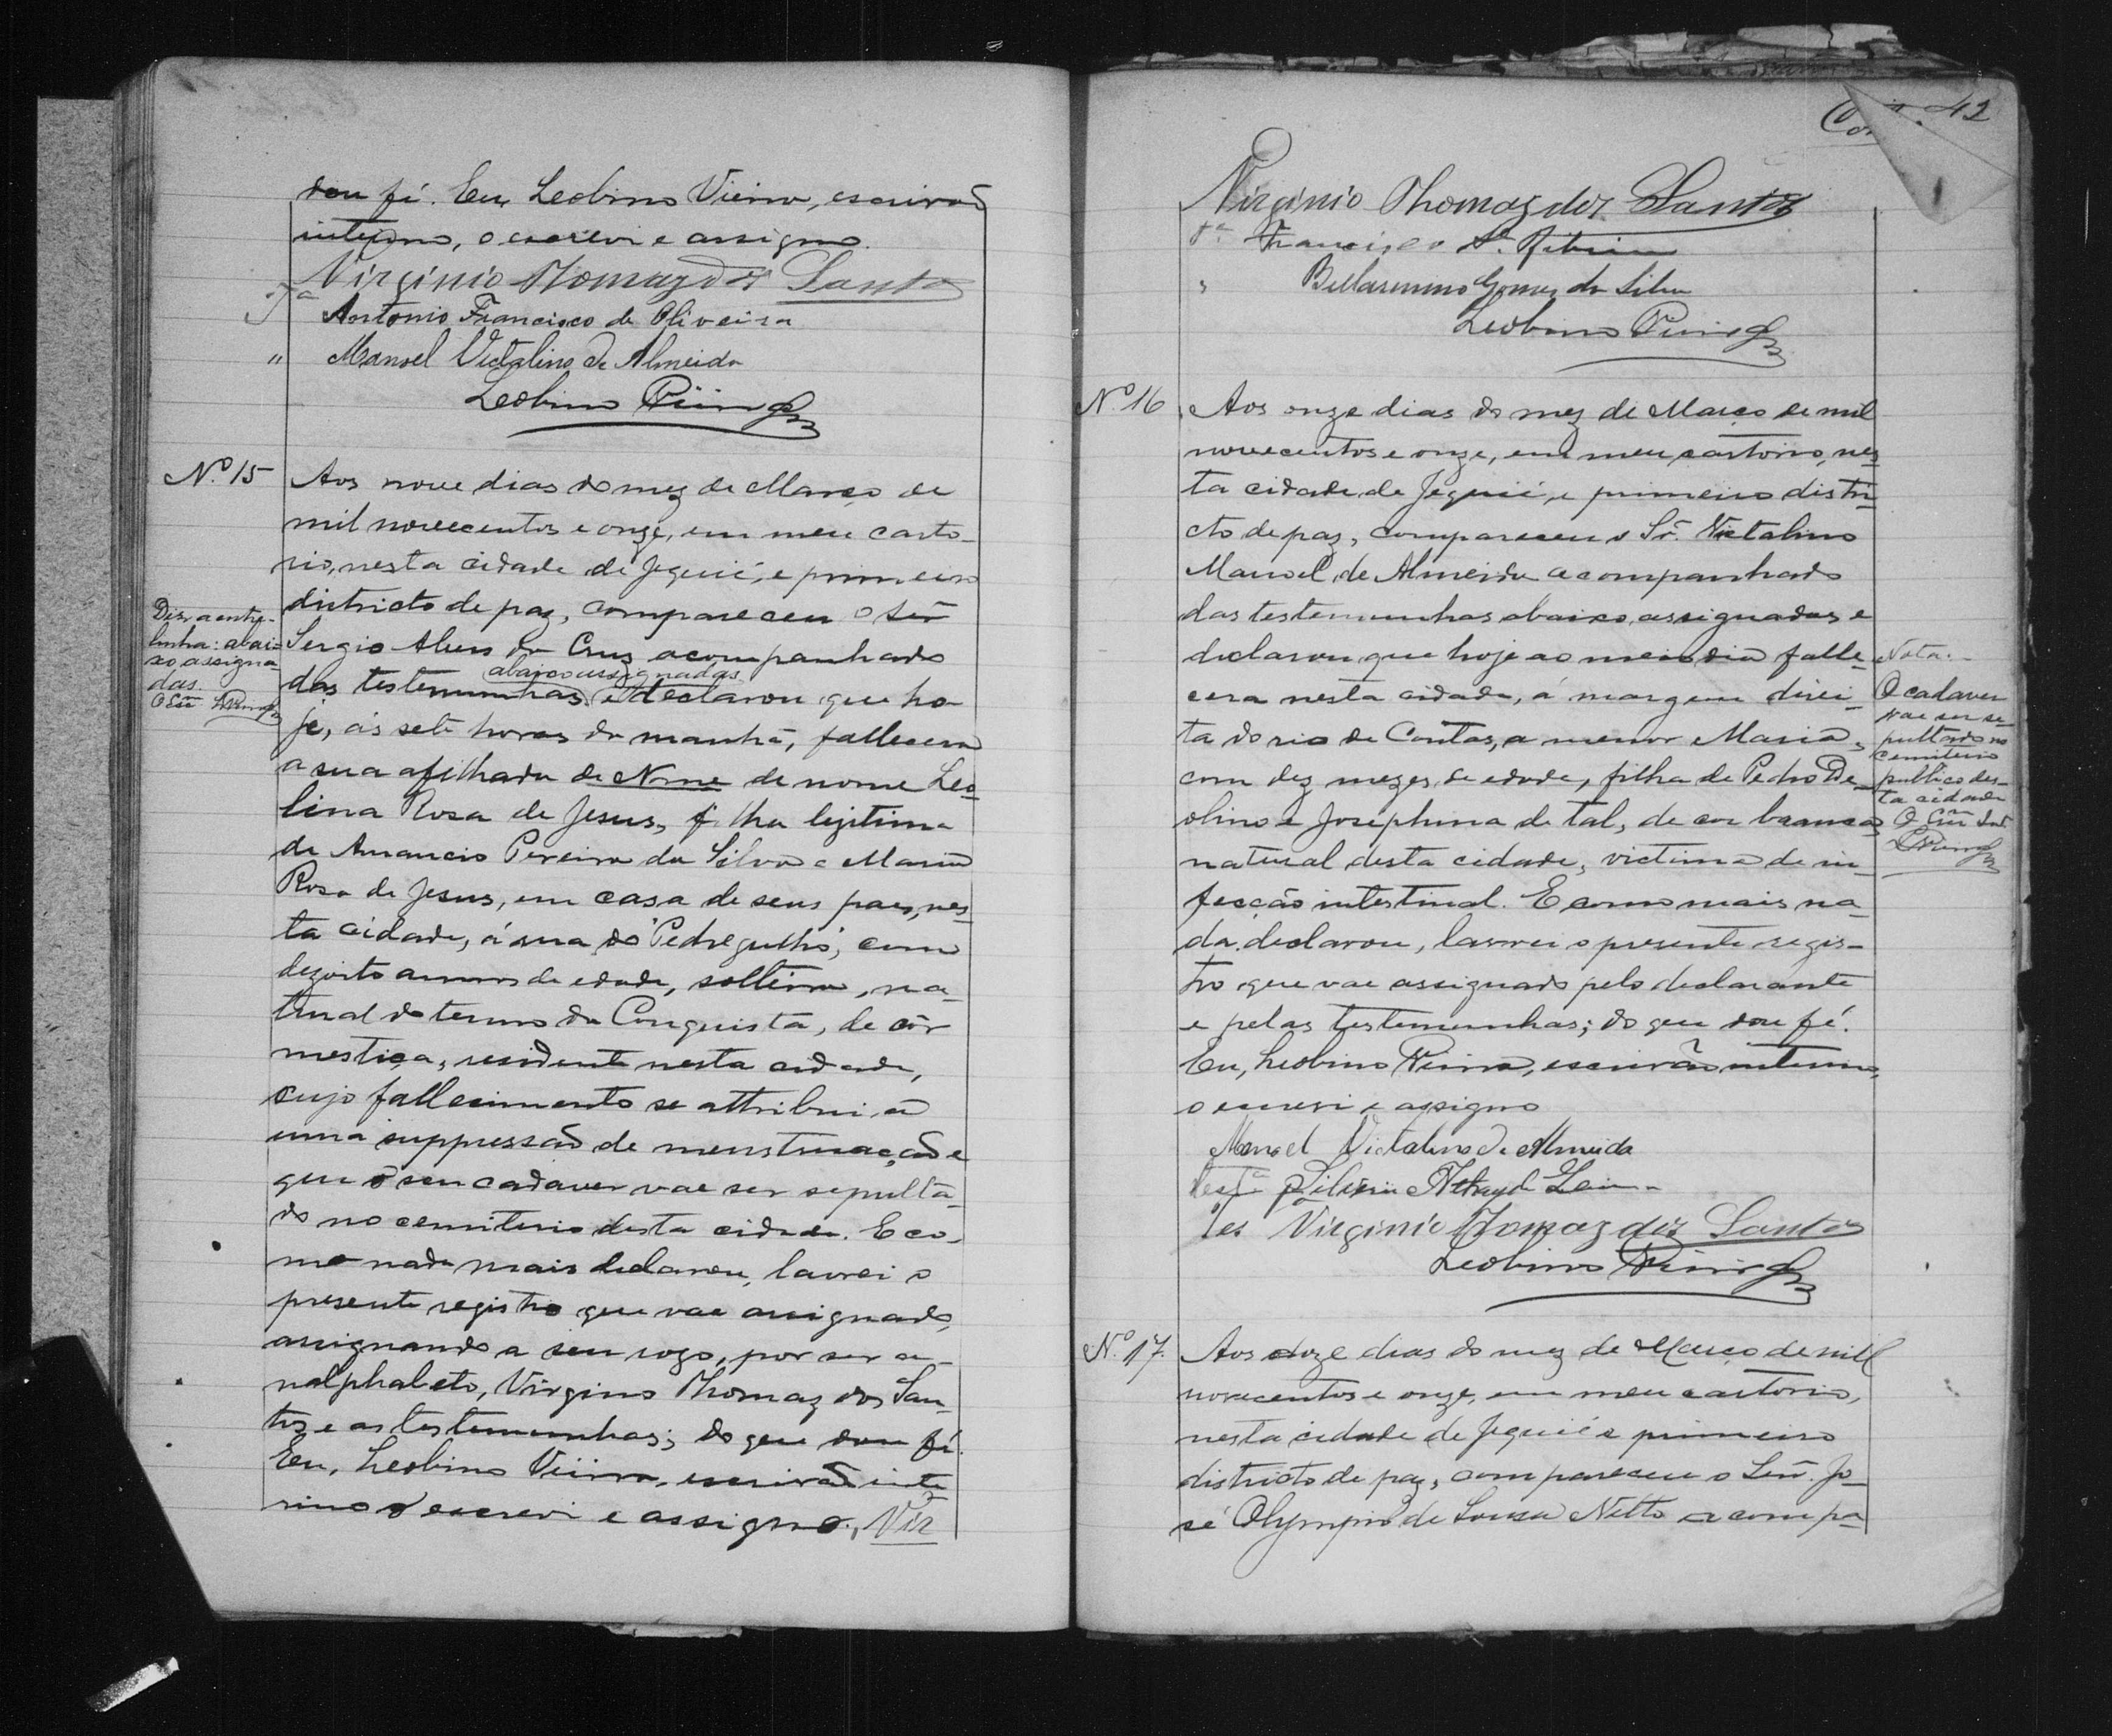 dou fé. Eu, Leobino Vieira, escrivão
interino, o escrevi e assigno.
Virginio Thomaz dos Santos
Tª Antonio Francisco de Oliveira
" Manoel Victalino de Almeida
Leobino Vieira
Nº 15 Aos nove dias do mez de Março de
mil novecentos e onze, em meu carto-
rio, nesta cidade de Jequié, e primeiro
districto de paz, compareceu o Snr
Sergio Alves da Cruz acompanhado
abaixo assignadas
das testemunhas e declarou que ho
je, ás sete horas da manhã, fallecera
a sua afilhada de Nome de nome Leo-
lina Rosa de Jesus, filha legitima
de Amancio Pereira da Silva e Maria
Rosa de Jesus, em casa de seus paes, nes-
ta cidade, á rua do "Pedregulho", com
dezoito annos de edade, solteira, na-
tural do termo da Conquista, de côr
mestiça, residente nesta cidade,
cujo fallecimento se attribui a
uma suppressão de menstruação e
que o seu cadaver vae ser sepulta-
do no cemiterio desta cidade. E co-
mo nada mais declarou, lavrei o
presente registro que vae assignado,
assignando a seu rogo, por ser a-
nalphabeto, Virginio Thomaz dos San-
tos e as testemunhas; do que dou fé.
Eu, Leobino Vieira, escrivão inte
rino o escrevi e assigno. Vir
Diz a entre-
linha: abai-
xo assigna-
das.
O Esc.
42
Virginio Thomaz dos Santos
Tª Francisco Ribeiro
" Bellarmino Gomes da Silva
Leobino Vieira
Nº 16 Aos onze dias do mez de Março de mil
novecentos e onze, em meu cartorio, nes-
ta cidade de Jequié, e primeiro distri-
cto de paz, compareceu o Sr. Victalino
Manoel de Almeida acompanhado
das testemunhas abaixo assignadas e
declarou que hoje ao meio dia falle-
cera nesta cidade, á margem direi-
ta do rio de Contas, a menor Maria,
com dez mezes de edade, filha de Pedro De-
olino e Josephina de tal, de cor branca,
natural desta cidade, victima de in-
fecção intestinal. E como mais na-
da declarou, lavrei o presente regis-
tro que vae assignado pelo declarante
e pelas testemunhas; do que dou fé.
Eu, Leobino Vieira, escrivão interino,
o escrevi e assigno
Manoel Victalino de Almeida
Testª
Tes Virginio Thomaz dos Santos
Leobino Vieira
Nota.
O cadaver
vae ser se-
pultado no
cemiterio
publico des-
ta cidade
O Esc. Int.
LVieira
Nº 17. Aos doze dias do mez de Março de mil
novecentos e onze, em meu cartorio,
nesta cidade de Jequié e primeiro
districto de paz, compareceu o Snr. Jo-
sé Olympio de Souza Netto acompa-